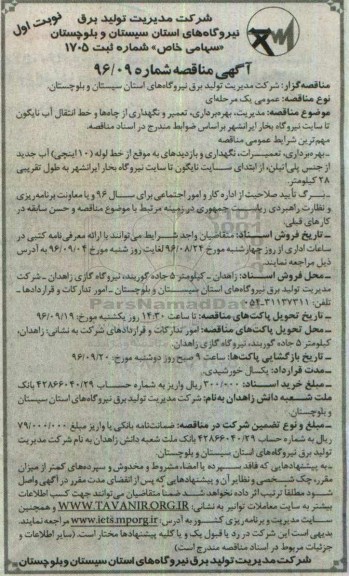 نوبت اول
شرکت مدیریت تولید برق
نیروگاه‌های استان سیستان و بلوچستان
«سهامی خاص» شماره ثبت ۱۷۰۵
آگهی مناقصه شماره ۹۶/۰۹
مناقصه‌گزار: شرکت مدیریت تولید برق نیروگاه‌های استان سیستان و بلوچستان.
نوع مناقصه: عمومی یک مرحله‌ای
موضوع مناقصه: مدیریت، بهره‌برداری، تعمیر و نگهداری از چاه‌ها و خط انتقال آب نایگون
تا سایت نیروگاه بخار ایرانشهر براساس ضوابط مندرج در اسناد مناقصه.
مهم‌ترین شرایط عمومی مناقصه
ـ بهره‌برداری، تعمیــرات، نگهداری و بازدیدهای به موقع از خط لوله (۱۰ اینچی) آب جدید
از جنس پلی‌اتیلن، از ابتدای سایت نایگون تا سایت نیروگاه بخار ایرانشهر به طول تقریبی
۲۸ کیلومتر.
ـ بــرگ تأیید صلاحیت از اداره کار و امور اجتماعی برای سال ۹۶ و یا معاونت برنامه‌ریزی
و نظارت راهبردی ریاست جمهوری در زمینه مرتبط با موضوع مناقصه و حسن سابقه در
کارهای قبلی.
ـ تاریخ فروش اسـناد: متقاضیان واجد شرایط می‌توانند با ارائه معرفی‌نامه کتبی در
ساعات اداری از روز چهارشنبه مورخ ۹۶/۰۸/۲۴ لغایت روز شنبه مورخ ۹۶/۰۹/۰۴ به آدرس
ذیل مراجعه نمایند.
ـ محل فروش اسـناد: زاهدان ـ کیلومتر ۵ جاده گوربند، نیروگاه گازی زاهدان ـ شرکت
مدیریت تولید برق نیروگاه‌های استان سیستان و بلوچستان ـ امور تدارکات و قراردادها ـ
تلفن: ۳۱۱۳۷۳۱۱-۰۵۴
ـ تاریخ تحویل پاکت‌های مناقصه: تا ساعت ۱۴:۳۰ روز یکشنبه مورخ: ۹۶/۰۹/۱۹
ـ محل تحویل پاکت‌های مناقصه: امور تدارکات و قراردادهای شرکت به نشانی: زاهدان،
کیلومتر ۵ جاده گوربند، نیروگاه گازی زاهدان.
ـ تاریخ بازگشایی پاکت‌ها: ساعت ۹ صبح روز دوشنبه مورخ: ۹۶/۰۹/۲۰
ـ مدت قرارداد: یکسال خورشیدی.
ـ مبلغ خرید اســناد: ۲۰۰/۰۰۰ ریال واریز به شماره حساب ۴۲۸۶۶۰۴۰/۲۹ بانک
ملت شــعبه دانش زاهدان به‌نام: شرکت مدیریت تولید برق نیروگاه‌های استان سیستان
و بلوچستان.
ـ مبلغ و نوع تضمین شرکت در مناقصه: ضمانت‌نامه بانکی یا واریز مبلغ ۷۹/۰۰۰/۰۰۰
ریال به شماره حساب ۴۲۸۶۶۰۴۰/۲۹ بانک ملت شعبه دانش زاهدان به نام شرکت مدیریت
تولید برق نیروگاه‌های استان سیستان و بلوچستان.
ـ به پیشنهادهایی که فاقد ســپرده یا امضاء، مشروط و مخدوش و سپرده‌های کمتر از میزان
مقرر، چک شخصی و نظایر آن و پیشنهادهایی که پس از انقضای مدت مقرر در آگهی واصل
شود مطلقا ترتیب اثر داده نخواهد شد. ضمنا متقاضیان می‌توانند جهت کسب اطلاعات
بیشتر به سایت معاملات توانیر به نشانی: WWW.TAVANIR.ORG.IR و همچنین
سایت مدیریت و برنامه‌ریزی کشور به آدرس: www.iets.mporg.ir مراجعه نمایند.
بدیهی است این شرکت در رد یا قبول یک و یا کلیه پیشنهادها مختار است. (سایر اطلاعات و
جزئیات مربوط در اسناد مناقصه مندرج است)
شرکت مدیریت تولید برق نیروگاه‌های استان سیستان و بلوچستان
ParsNamadData